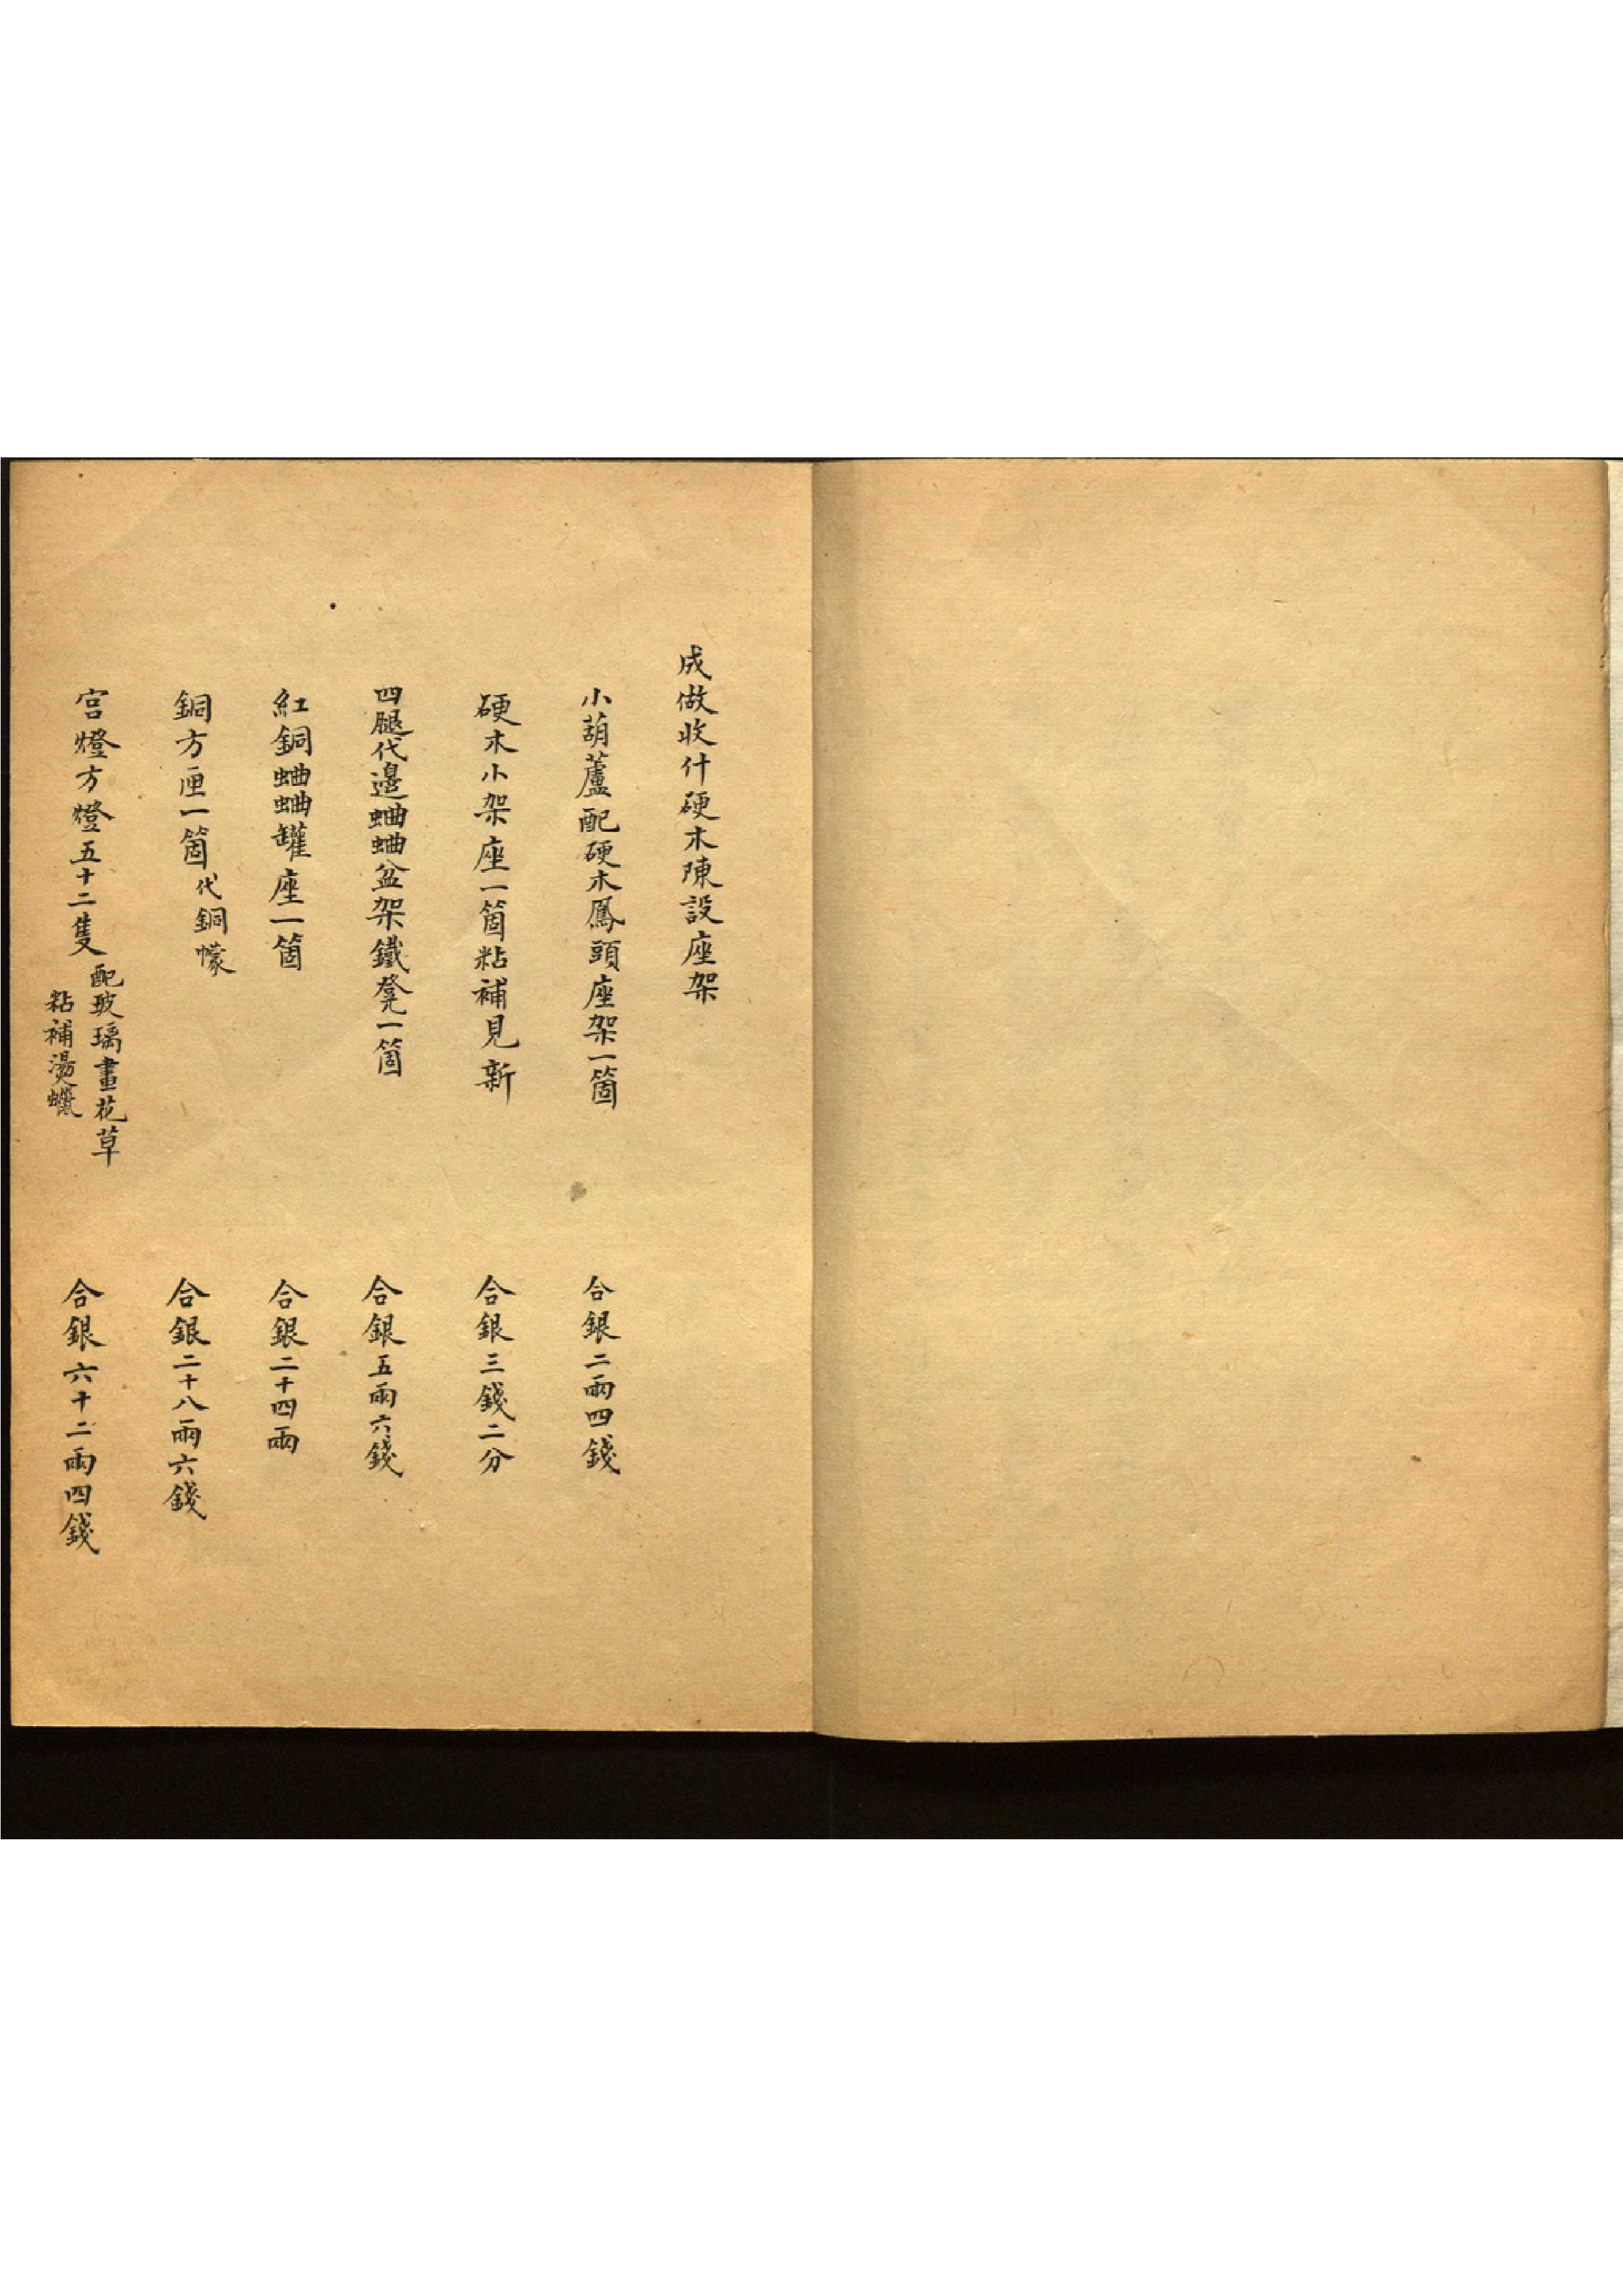 成做收什硬木陳設座架
小葫蘆配硬木鳳頭座架一箇 合銀二兩四錢
硬木小架座一箇粘補見新 合銀三錢二分
四腿代邊蛐蛐盆架鐵凳一箇 合銀五兩六錢
紅銅蛐蛐罐座一箇 合銀二十四兩
銅方匣一箇代銅幪 合銀二十八兩六錢
宮燈方燈五十二隻 配玻璃畫花草 粘補燙蠟 合銀六十二兩四錢